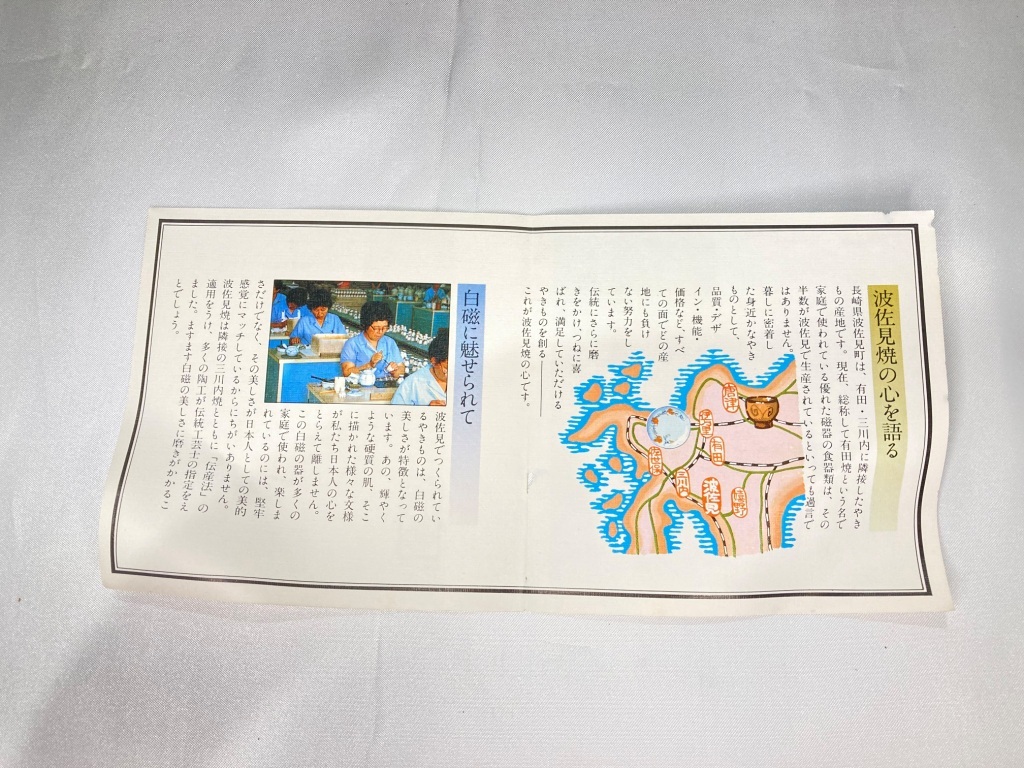 波佐見焼の心を語る
長崎県波佐見町は、有田・三川内に隣接したやき
もの産地です。現在、総称して有田焼という名で
家庭で使われている優れた磁器の食器類は、その
半数が波佐見で生産されているといっても過言で
はありません。
暮しに密着し
た身近かなやき
ものとして、
品質・デザ
イン・機能・
価格など、すべ
ての面でどの産
地にも負け
ない努力をし
ています。
伝統にさらに磨
きをかけ、つねに喜
ばれ、満足していただける
やきものを創る――
これが波佐見焼の心です。
唐津
伊万里
有田
佐世保
三川内
波佐見
嬉野
白磁に魅せられて
波佐見でつくられてい
るやきものは、白磁の
美しさが特徴となって
います。あの、輝やく
ような硬質の肌、そこ
に描かれた様々な文様
が私たち日本人の心を
とらえて離しません。
この白磁の器が多くの
家庭で使われ、楽しま
れているのには、堅牢
さだけでなく、その美しさが日本人としての美的
感覚にマッチしているからにちがいありません。
波佐見焼は隣接の三川内焼とともに「伝産法」の
適用をうけ、多くの陶工が伝統工芸士の指定をえ
ました。ますます白磁の美しさに磨きがかかるこ
とでしょう。